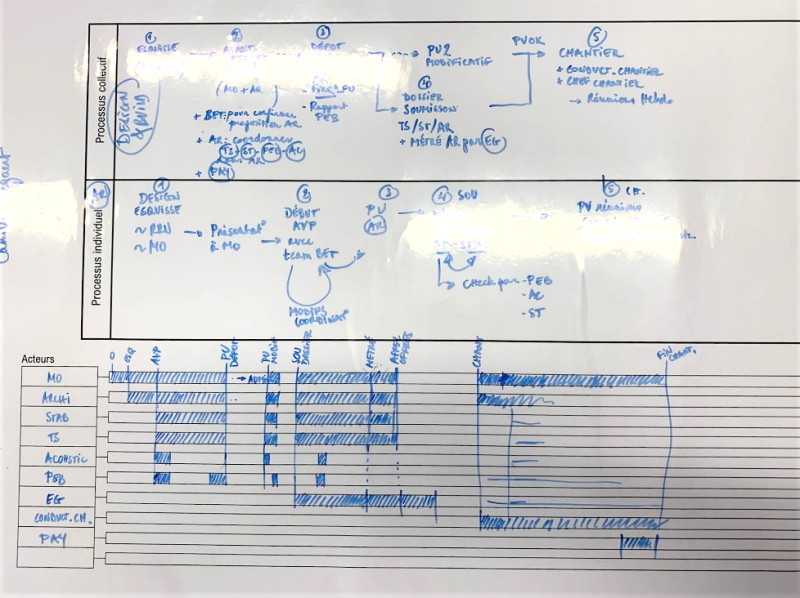 Processus collectif
DESIGN
①
ESQUISSE
②
(MO + AR)
+ BET: pour confirmer
proposition AR
+ AR: coordonner
TS + ST - PEB - AC
AR
+ PAY
③
DÉPOT
PU
- Rapport
PEB
PU2
MODIFICATIF
PU OK
④
DOSSIER
SOUMISSION
TS/ST/AR
+ MÉTRÉ AR par EG
⑤
CHANTIER
+ CONDUCT. CHANTIER
+ CHEF CHANTIER
→ Réunions Hebdo
Processus individuel
AR
①
DESIGN
ESQUISSE
~ MO
→ Présentat°
à MO
②
DÉBUT
AVP
avec
team BET
MODIFS
COORDINAT°
③
PU
AR
④ SOU
Check par - PEB
- AC
- ST
⑤ CH.
PV réunions
Acteurs
O
ESQ
AVP
PU
DÉPOT
PU
MODIF
SOU
DOSSIER
MÉTRÉ
APPEL
OFFRES
CHANT
FIN CHANT.
MO
ARCHI
STAB
TS
ACOUSTIC
PEB
EG
CONDUCT. CH.
PAY